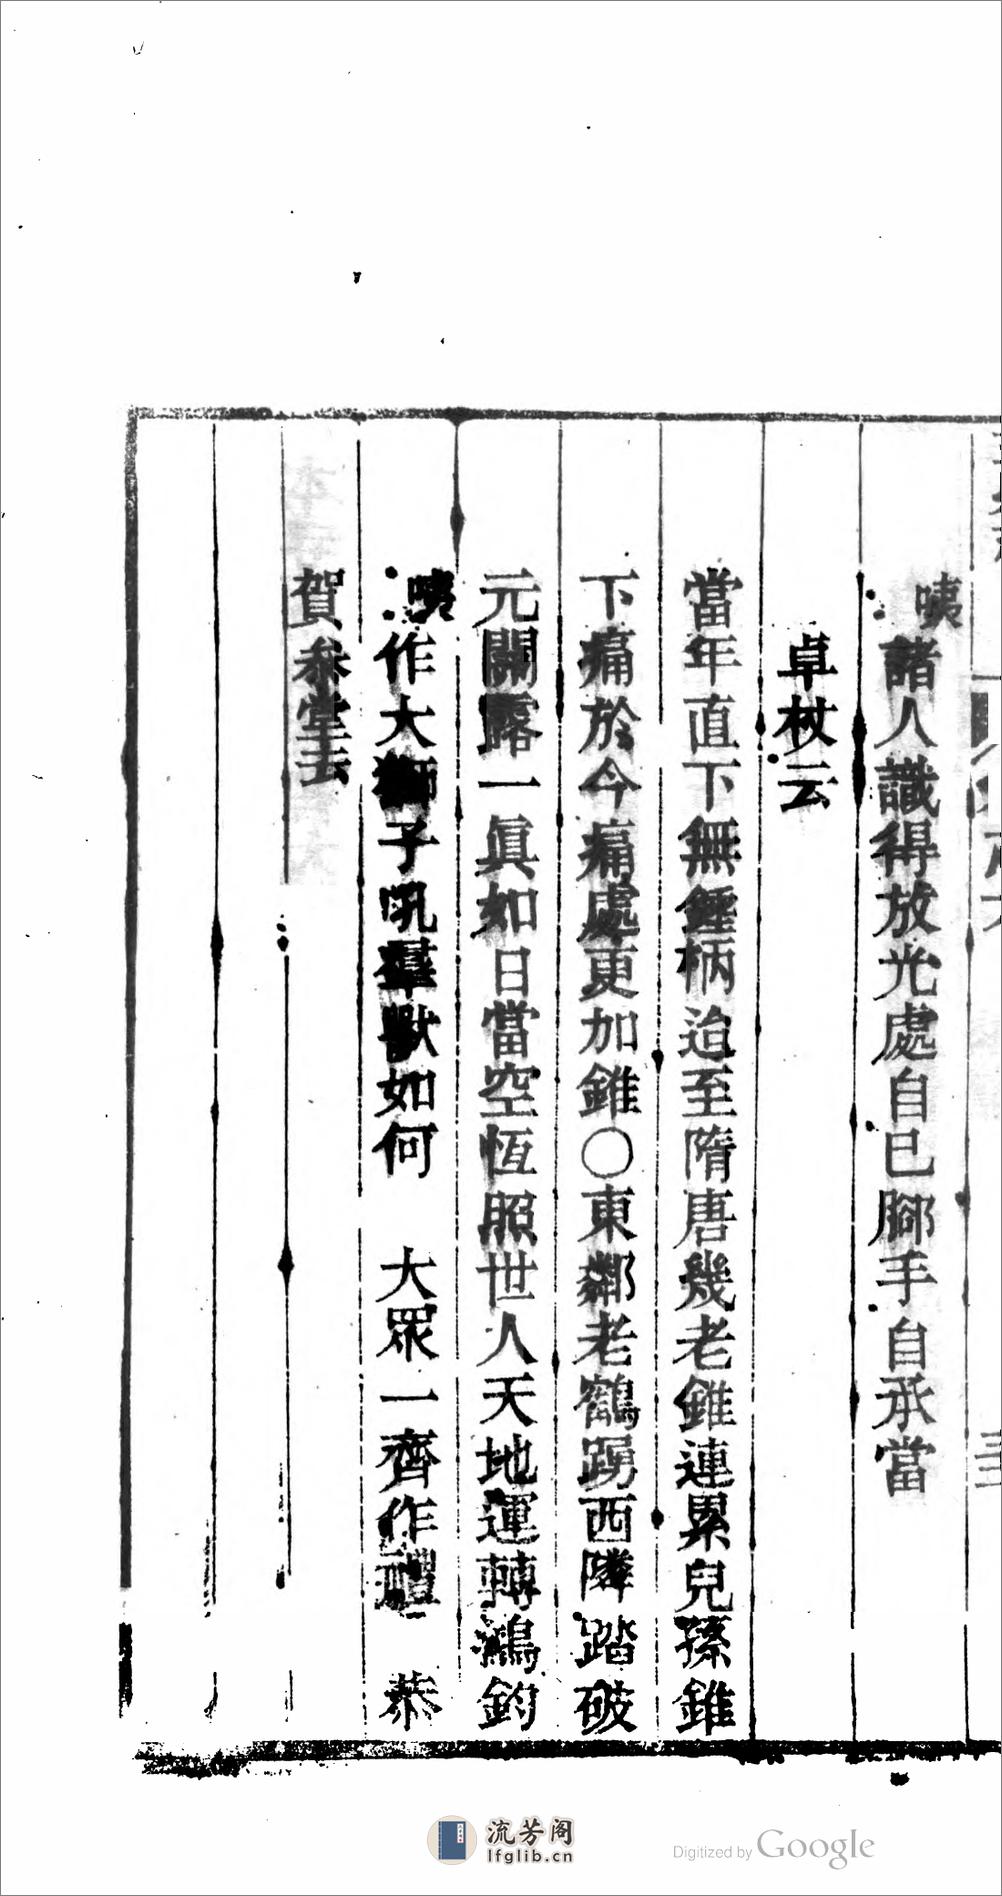 咦諸人識得放光處自己腳手自承當
卓杖云
當年直下無錐柄迨至隋唐幾老錐連累兒孫錐
下痛於今痛處更加錐○東鄰老鶴踴西隣踏破
元關露一眞如日當空恆照世人天地運轉鴻鈞
咦作大獅子吼羣獸如何　大眾一齊作禮　恭
賀叅堂去
流芳阁
lfglib.cn
Digitized by Google